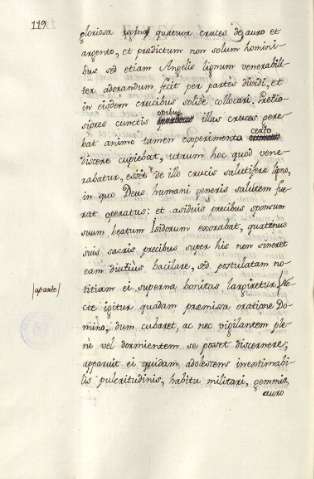 119.
gloriosa quatuor cruces de auro et
argento, et predictum non solum homini-
bus sed etiam Angelis lignum venerabili-
ter adorandum fecit per partes dividi, et
in eisdem crucibus solide collocari. Pretio-
opibus
siores cunctis illas cruces pere-
certo
bat animo tamen experimento
discere cupiebat, utrum hoc quod vene-
rabatur, esset de illo crucis salutifere ligno,
in quo Deus humani generis salutem fue-
rat operatus: et asiduis precibus sponsum
suum beatum Isidorum exorabat, quatenus
suis sacris precibus super his non sineret
eam diutius bacilare, sed postulatam no-
titiam ei superna bonitas largiretur. Noc-
|aparte|
te igitur quadam premissa oratione Do-
mino, dum cubaret, ac nec vigilantem ple-
ne vel dormientem se posset discernere;
apparuit ei quidam adolescens inestimabi-
lis pulcritudinis, habitu militari, gemmis,
auro